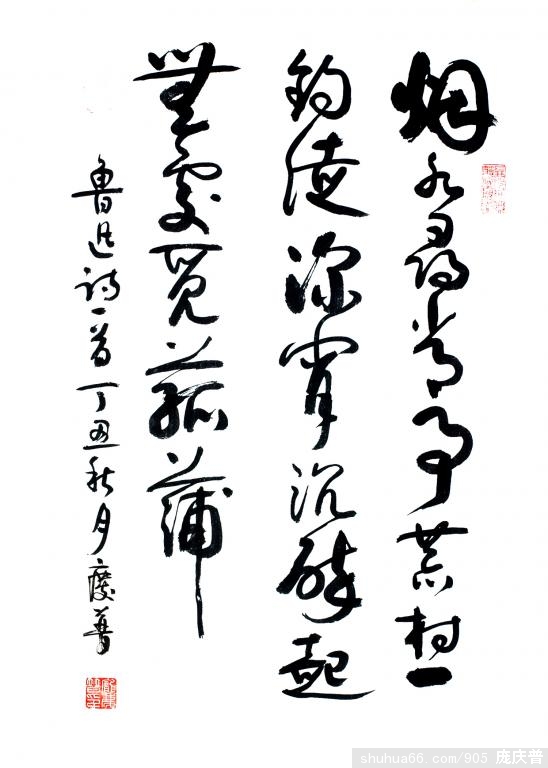 烟水尋常事荒村一
釣徒深宵沉醉起
無處覓菰蒲
魯迅詩一首丁丑秋月慶普
shuhua66.com/905 庞庆普